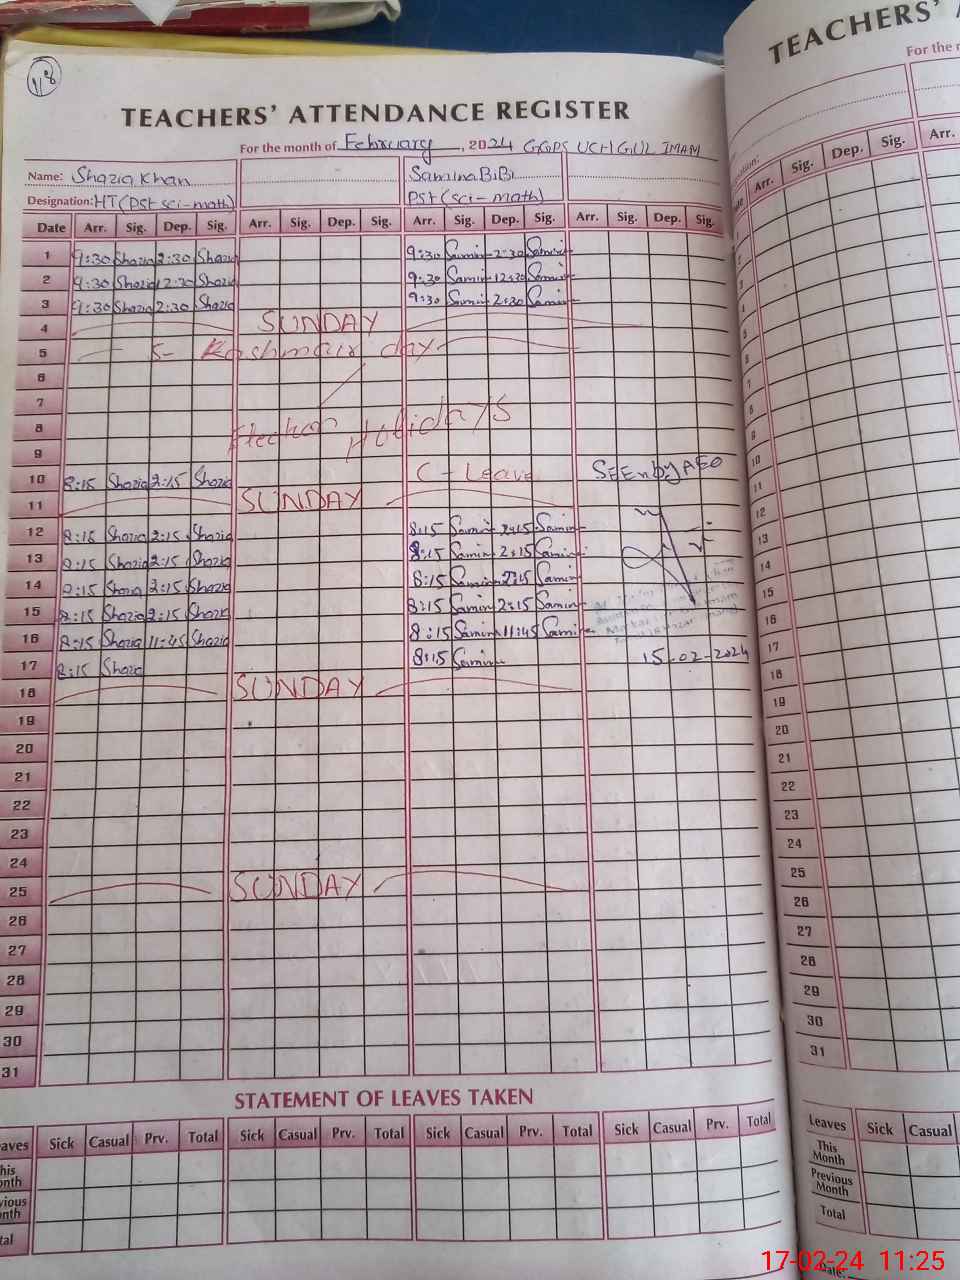 118
TEACHERS' ATTENDANCE REGISTER
For the month of February, 2024 GGPS UCHI GUL IMAM
Name: Shazia Khan Samina BiBi
Designation: HT (PST sci-math) PST (sci-math)
Date Arr. Sig. Dep. Sig. Arr. Sig. Dep. Sig. Arr. Sig. Dep. Sig. Arr. Sig. Dep. Sig.
1 9:30 Shazia 2:30 Shazia 9:30 Samin 2:30 Samin
2 9:30 Shazia 12:30 Shazia 9:30 Samin 12:30 Samin
3 9:30 Shazia 2:30 Shazia 9:30 Samin 2:30 Samin
4 SUNDAY
5 5- Kashmair day
6
7
8 Election Holidays
9
10 8:15 Shazia 2:15 Shazia C-Leave SEEN by AEO
11 SUNDAY
12 8:15 Shazia 2:15 Shazia 8:15 Samin 2:15 Samin
13 8:15 Shazia 2:15 Shazia 8:15 Samin 2:15 Samin
14 8:15 Shazia 2:15 Shazia 8:15 Samin 2:15 Samin
15 8:15 Shazia 2:15 Shazia 8:15 Samin 2:15 Samin
16 8:15 Shazia 11:45 Shazia 8:15 Samin 11:45 Samin
17 8:15 Shazia 8:15 Samin 15-02-2024
18 SUNDAY
19
20
21
22
23
24
25 SUNDAY
26
27
28
29
30
31
STATEMENT OF LEAVES TAKEN
Sick Casual Prv. Total Sick Casual Prv. Total Sick Casual Prv. Total Sick Casual Prv. Total
TEACHERS'
For the
Arr. Sig. Dep. Sig. Arr.
10
11
12
13
14
15
16
17
18
19
20
21
22
23
24
25
26
27
28
29
30
31
Leaves Sick Casual
This Month
Previous Month
Total
Date:
17-02-24 11:25